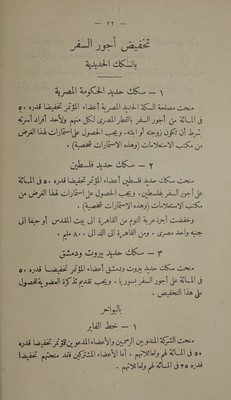 — ٢٢ —
تخفيض أجور السفر
بالسكك الحديدية
١ — سكك حديد الحكومة المصرية
منحت مصلحة السكة الحديد المصرية أعضاء المؤتمر تخفيضا قدره ٥٠
فى المائة من أجور السفر بالقطر المصرى لكل منهم ولأحد أفراد أسرته
بشرط أن تكون زوجته أو ابنته، ويجب الحصول على استمارات لهذا الغرض
من مكتب الاستعلامات (وهذه الاستمارات شخصية).
٢ — سكك حديد فلسطين
منحت سكك حديد فلسطين أعضاء المؤتمر تخفيضا قدره ٥٠ فى المائة
على أجور السفر بفلسطين. ويجب الحصول على استمارات لهذا الغرض من
مكتب الاستعلامات (وهذه الاستمارات شخصية).
وخفضت أجرة عربة النوم من القاهرة الى بيت المقدس أو حيفا الى
جنيه واحد مصرى. ومن القاهرة الى اللد الى ٨٠٠ مليم.
٣ — سكك حديد بيروت ودمشق
منحت سكك حديد بيروت ودمشق أعضاء المؤتمر تخفيضا قدره ٥٠
فى المائة على أجور السفر بسوريا. ويجب تقديم تذكرة العضوية للحصول
على هذا التخفيض.
بالبواخر
١ — خط الفابر
منحت الشركة المندوبين الرسميين والأعضاء المدعوين للمؤتمر تخفيضا قدره
٥٠ فى المائة لهم ولعائلاتهم. أما الأعضاء المشتركين فقد منحتهم تخفيضا
قدره ٢٥ فى المائة لهم ولعائلاتهم.